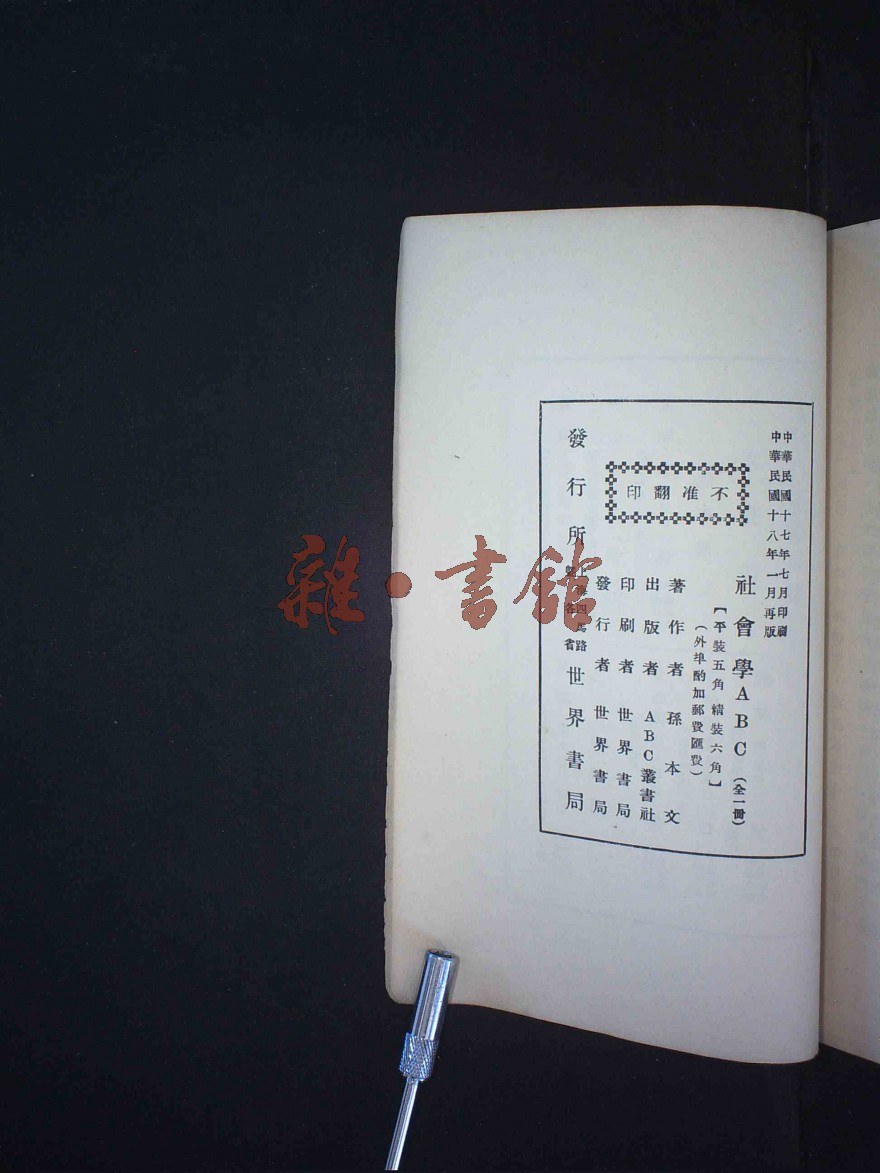 中華民國十七年七月印刷
中華民國十八年一月再版
社會學ABC（全一冊）
【平裝五角 精裝六角】
（外埠酌加郵費匯費）
不准翻印
著作者 孫本文
出版者 ABC叢書社
印刷者 世界書局
發行者 世界書局
發行所 四馬路 各省 世界書局
雜·書館